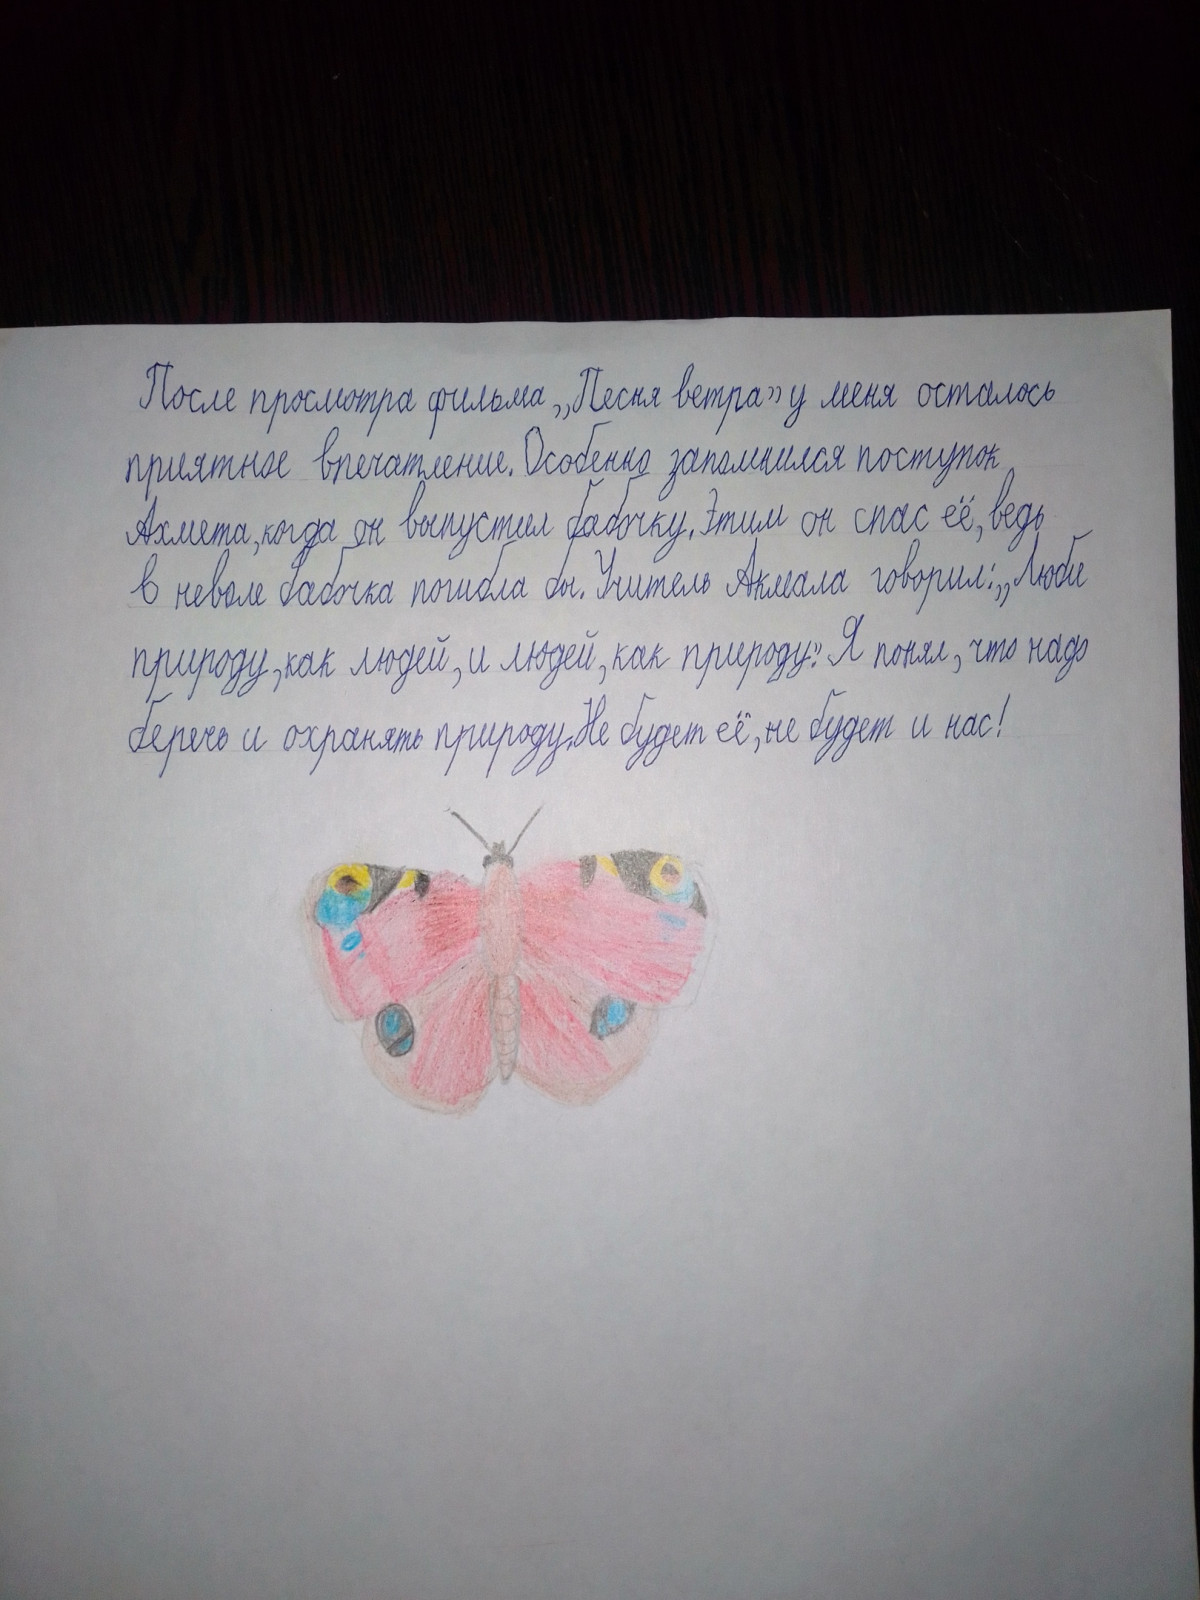 После просмотра фильма „Песня ветра” у меня осталось
приятное впечатление. Особенно запомнился поступок
Ахмета, когда он выпустил бабочку. Этим он спас её, ведь
в неволе бабочка погибла бы. Учитель Акмала говорил: „Люби
природу, как людей, и людей, как природу”. Я понял, что надо
беречь и охранять природу. Не будет её, не будет и нас!